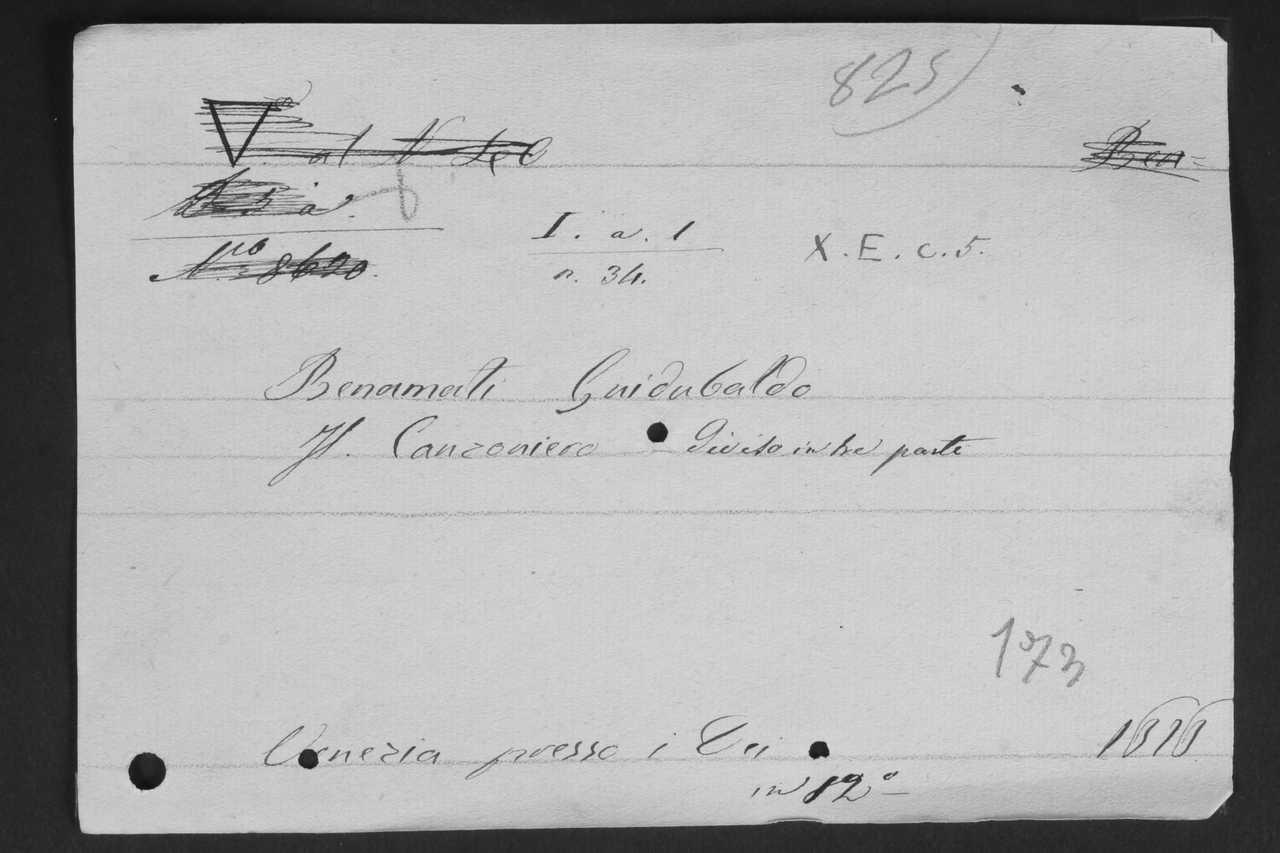 825
Ben=
N.ro 8620.
I. a. 1
n. 34.
X. E. c. 5.
Benamati Guidubaldo
Il Canzoniero Diviso in tre parte
173
Venezia presso i Dei 1616
in 12°